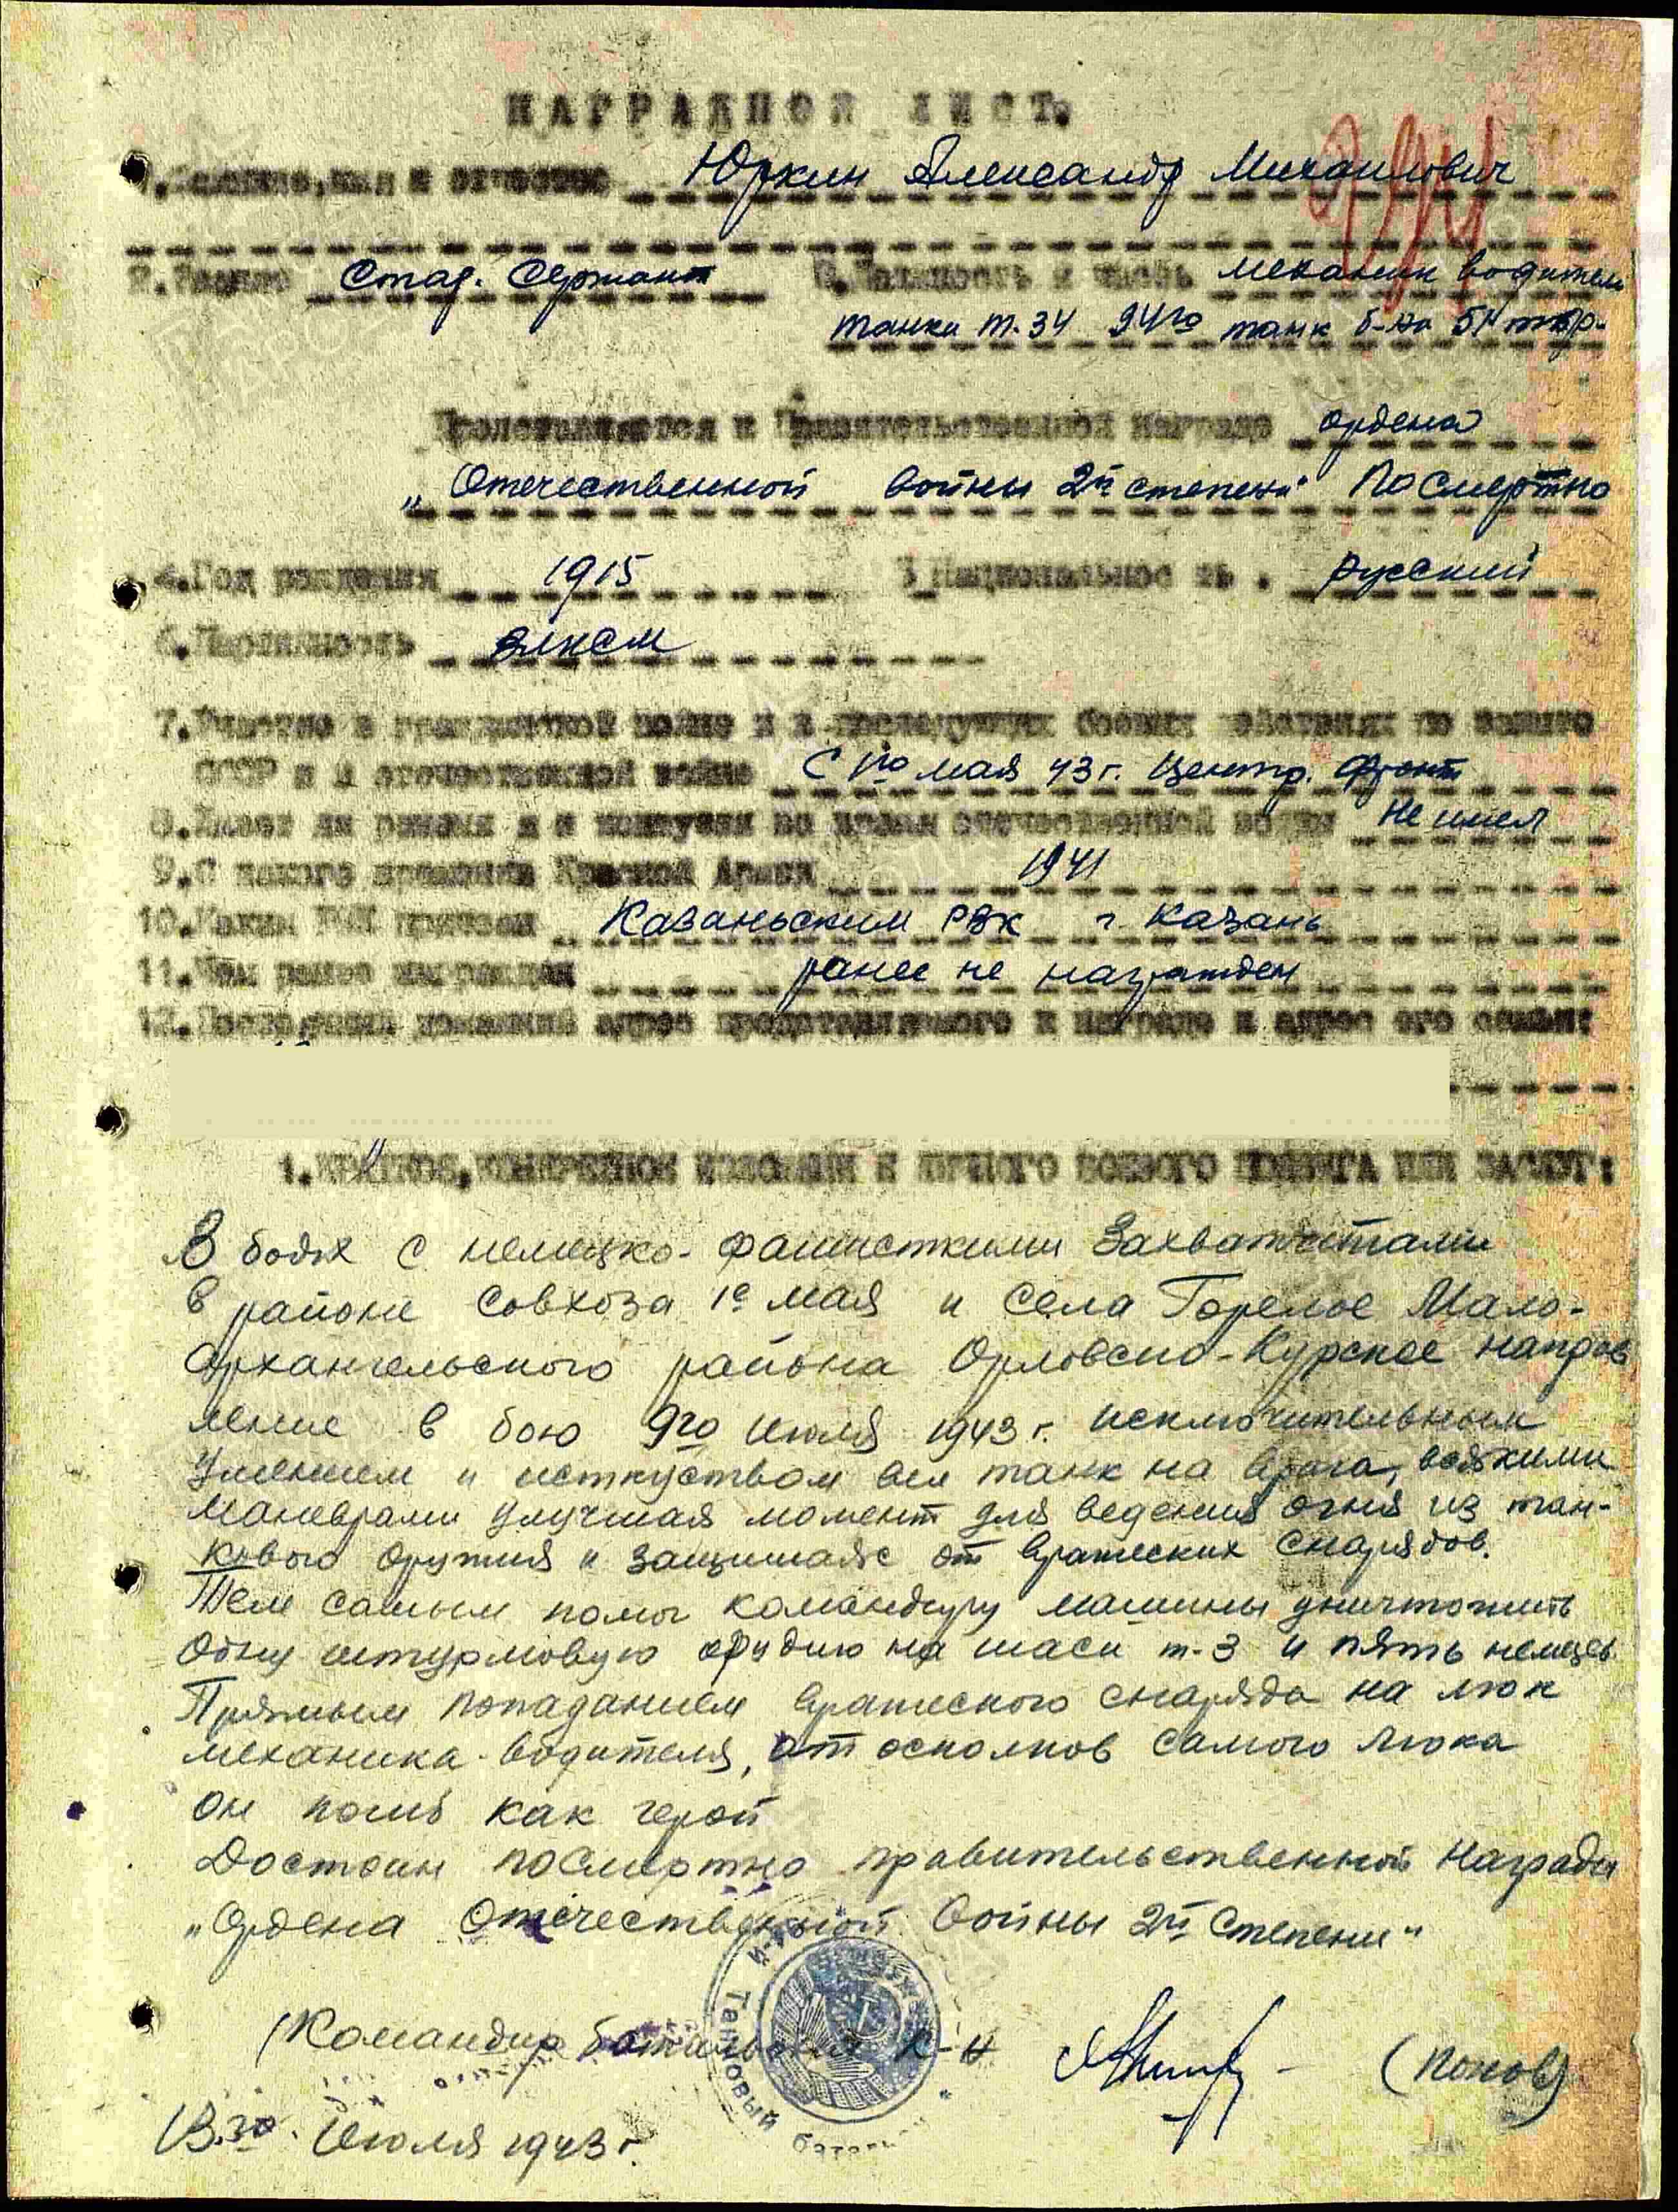 НАГРАДНОЙ ЛИСТ.
1.Фамилия,имя и отчество Юркин Александр Михайлович
2.Звание Стар. Сержант 3.Должность и часть механик водитель
танка т-34 24го танк б-на 51 тбр-
Представляется к Правительственной награде ордена
„Отечественной войны 2й степени" Посмертно
4.Год рождения 1915 5 Национальнос ть. русский
6.Партийность влксм
7.Участие в гражданской войне и в последующих боевых действиях по защите
СССР и в отечественной войне С 1го мая 43 г. Центр. фронт
8.Имеет ли ранения и контузии в отечественной войне Не имел
9.С какого времени Красной Армии 1941
10.Каким РВК призван Казаньским РВК г. Казань
11.Чем ранее награжден ранее не награжден
12.Постоянный домашний адрес представляемого к награде и адрес его семьи:
1.КРАТКОЕ,КОНКРЕТНОЕ ИЗЛОЖЕНИЕ ЛИЧНОГО БОЕВОГО ПОДВИГА ИЛИ ЗАСЛУГ:
В боях с немецко-фашисткими Захватчитами
в районе совхоза 1е мая и села Горелое Мало-
Архангельского района Орловско-Курское направ
ление в бою 9го Июля 1943 г. исключительным
Умением и исткуством вел танк на врага,
маневрами улучшая момент для ведения огня из тан-
кового оружия и защищаяс от вражеских снарядов.
Тем самым помог командиру машины уничтожить
одну штурмовую орудию на шаси т-3 и пять немцев.
Прямым попаданием вражеского снаряда на люк
механика-водителя, от осколков самого люка
он погиб как герой
Достоин посмертно правительственной Награды
„Ордена Отечественной Войны 2й Степени"
Командир батальона к-н (Попов)
Танковый батальон
13.го. Июля 1943 г.